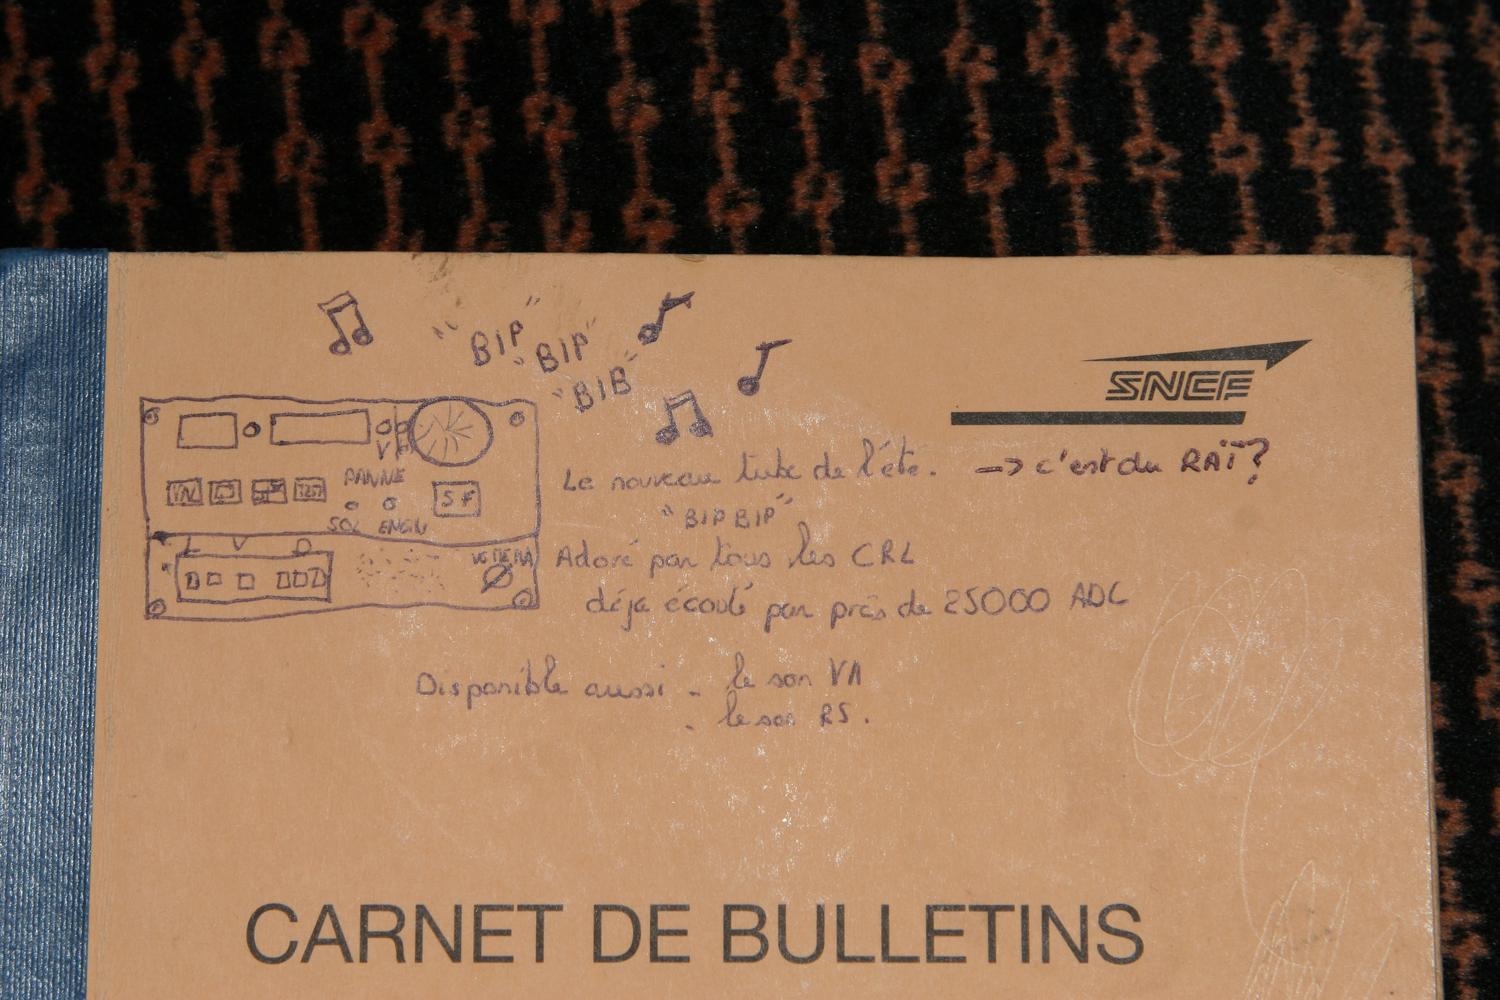 "BIP"
"BIP"
"BIB"
SNCF
Le nouveau tube de l'été. -> c'est du RAÏ?
"BIP BIP"
PANNE
SF
SOL ENGIN
L V D
Adoré par tous les CRL
déja écouté par près de 25000 ADC
Disponible aussi - le son VA
- le son RS.
CARNET DE BULLETINS